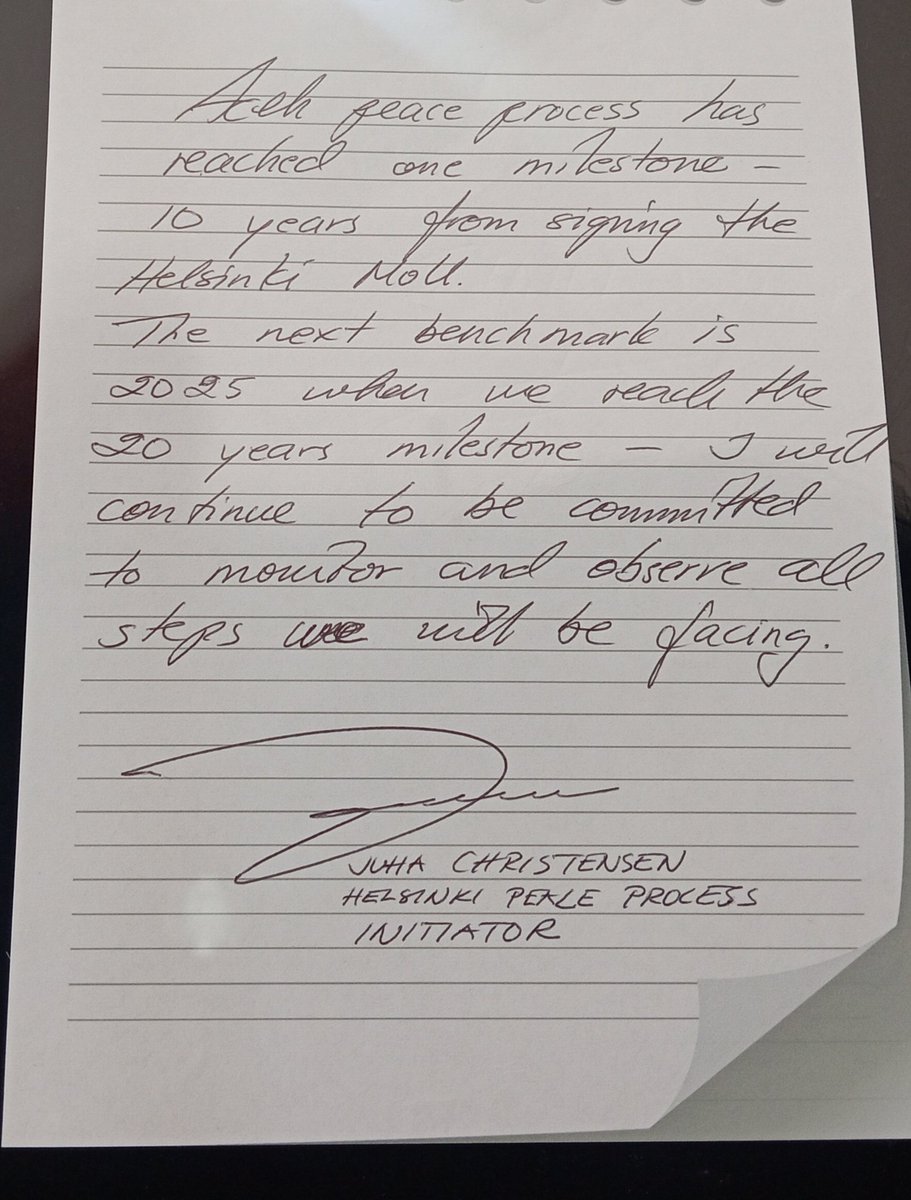 Aceh peace process has
reached one milestone –
10 years from signing the
Helsinki MoU.
The next benchmark is
2025 when we reach the
20 years milestone – I will
continue to be committed
to monitor and observe all
steps we will be facing.
JUHA CHRISTENSEN
HELSINKI PEACE PROCESS
INITIATOR